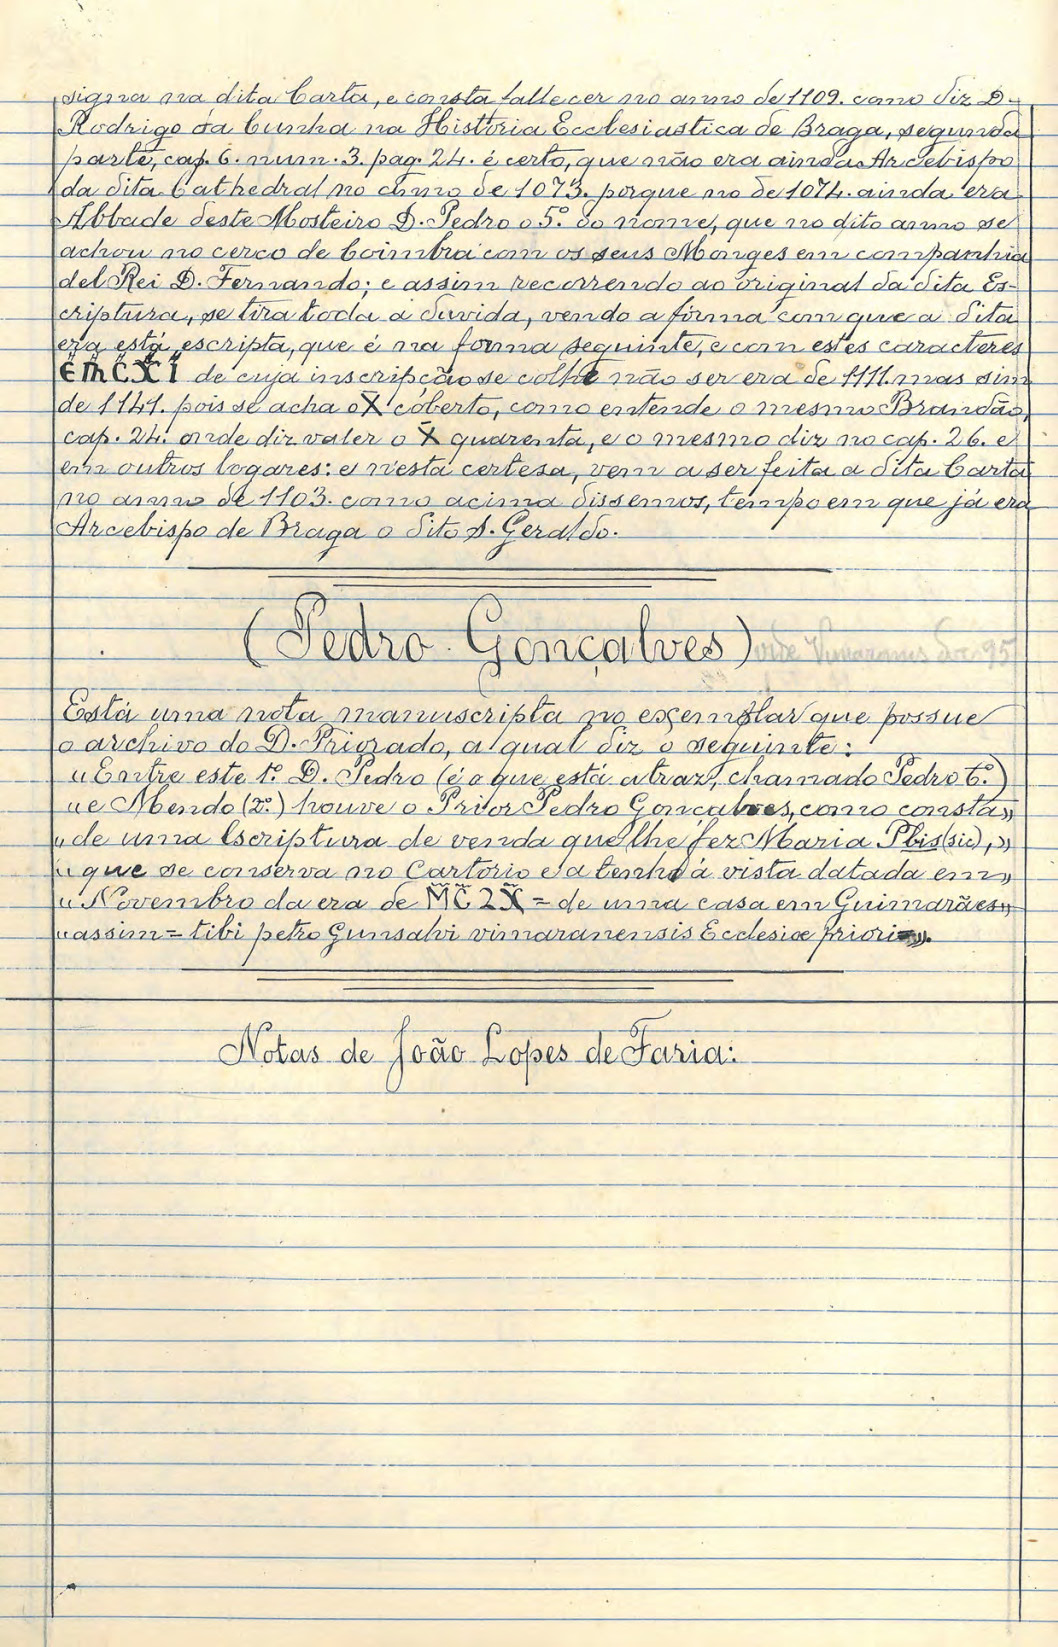 signa na dita Carta, e consta fallecer no anno de 1109. como diz D.
Rodrigo da Cunha na Histtoria Ecclesiastica de Braga, segunda
parte, cap. 6. num. 3. pag. 24. é certo, que não era ainda Arcebispo
da dita Cathedral no anno de 1073. porque no de 1074. ainda era
Abbade deste Mosteiro D. Pedro o 5º do nome, que no dito anno se
achou no cerco de Coimbra com os seus Monges em companhia
del Rei D. Fernando; e assim recorrendo ao original da dita Es-
criptura, se tira toda a duvida, vendo a fórma com que a dita
era está escripta, que é na forma seguinte, e com estes caracteres
de cuja inscripção se colhe não ser era de 1111. mas sim
de 1141. pois se acha o X coberto, como entende o mesmo Brandão,
cap. 24. onde diz valer o X̃ quarenta, e o mesmo diz no cap. 26. e
em outros logares: e nesta certesa, vem a ser feita a dita Carta
no anno de 1103. como acima dissemos, tempo em que já era
Arcebispo de Braga o dito S. Geraldo.
(Pedro Gonçalves) vide Vimaranis doc 95
Está uma nota manuscripta no exemplar que possue
o archivo do D. Priorado, a qual diz o seguinte:
"Entre este 1º. D. Pedro (é o que está atraz, chamado Pedro 6º.)
"e Mendo (2º.) houve o Prior Pedro Gonçalves, como consta"
"de uma Escriptura de venda que lhe fez Maria Pbis (sic),"
"que se conserva no Cartorio e a tenho á vista datada em"
"Novembro da era de M̃C̃2X̃ = de uma casa em Guimarães"
"assim = tibi petro Gunsalvi vimaranensis Ecclesiæ priori =".
Notas de João Lopes de Faria: